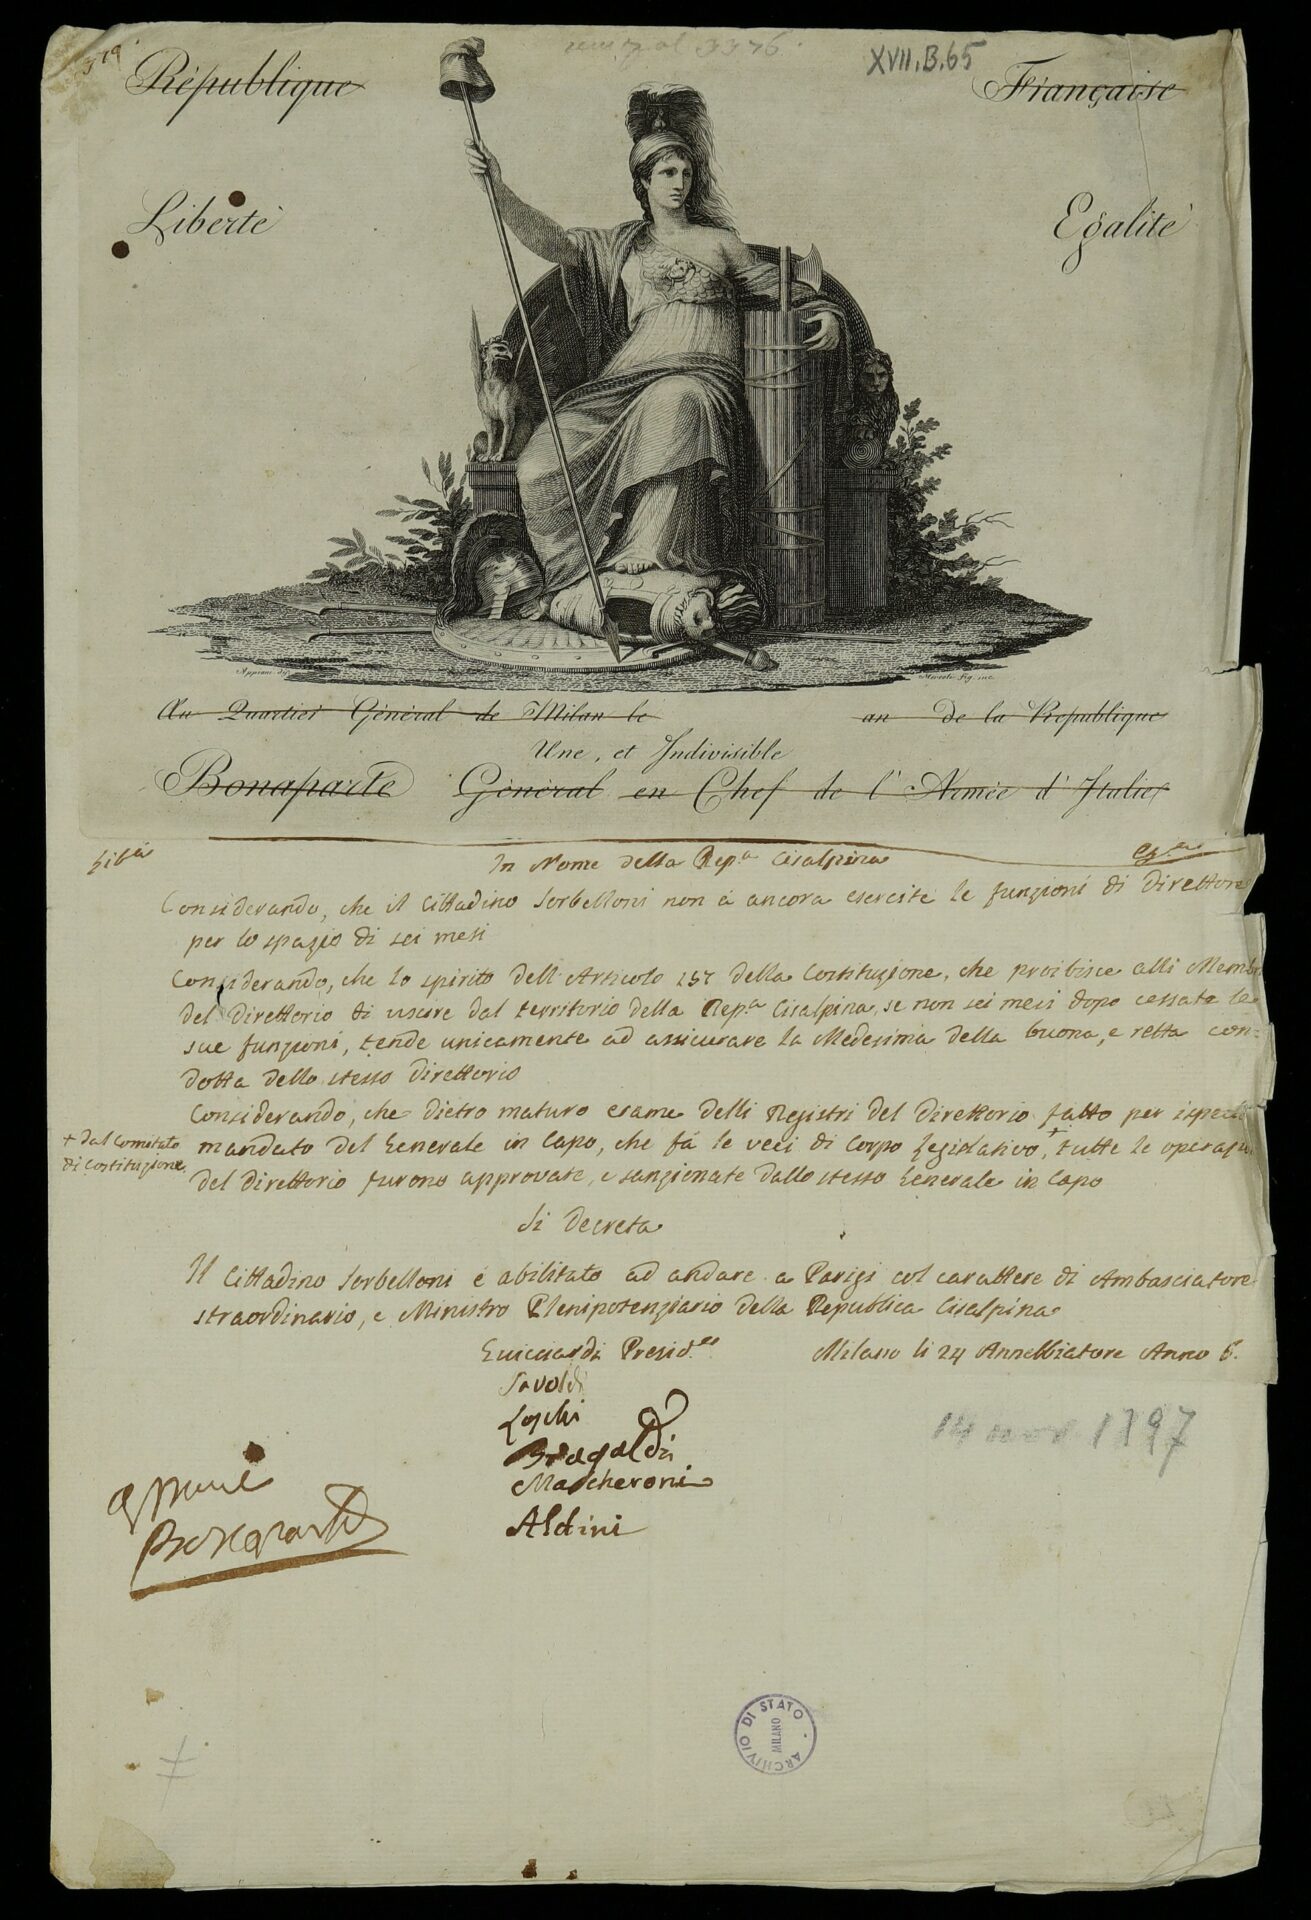 XVII.B.65
République Française
Liberté Egalité
Appiani
Mercoli fig. inc.
Au Quartier Général de Milan le an de la Republique
Une, et Indivisible
Bonaparte Général en Chef de l'Armée d'Italie
Lib.a Eg.a
In Nome della Rep.a Cisalpina
Considerando, che il Cittadino Serbelloni non à ancora esercite le funzioni di Direttore
per lo spazio di sei mesi
Considerando, che lo spirito dell'Articolo 157 della Costituzione, che proibisce alli Membri
del Direttorio di uscire dal territorio della Rep.a Cisalpina, se non sei mesi dopo cessate le
sue funzioni, tende unicamente ad assicurare la Medesima della buona, e retta con=
dotta dello stesso Direttorio
Considerando, che dietro maturo esame delli Registri del Direttorio fatto per
+ dal Comitato
di Costituzione
mandato del Generale in Capo, che fà le veci di Corpo Legislativo +, tutte le
del Direttorio furono approvate, e sanzionate dallo stesso Generale in Capo
Si Decreta
Il Cittadino Serbelloni è abilitato ad andare a Parigi col carattere di Ambasciatore
straordinario, e Ministro Plenipotenziario della Republica Cisalpina
Guicciardi Presid.te Milano li 24 Annebbiatore Anno 6.
Savoldi
Loschi
Bragaldi
Mascheroni
Aldini
14 nov 1797
Bonaparte
ARCHIVIO DI STATO
MILANO